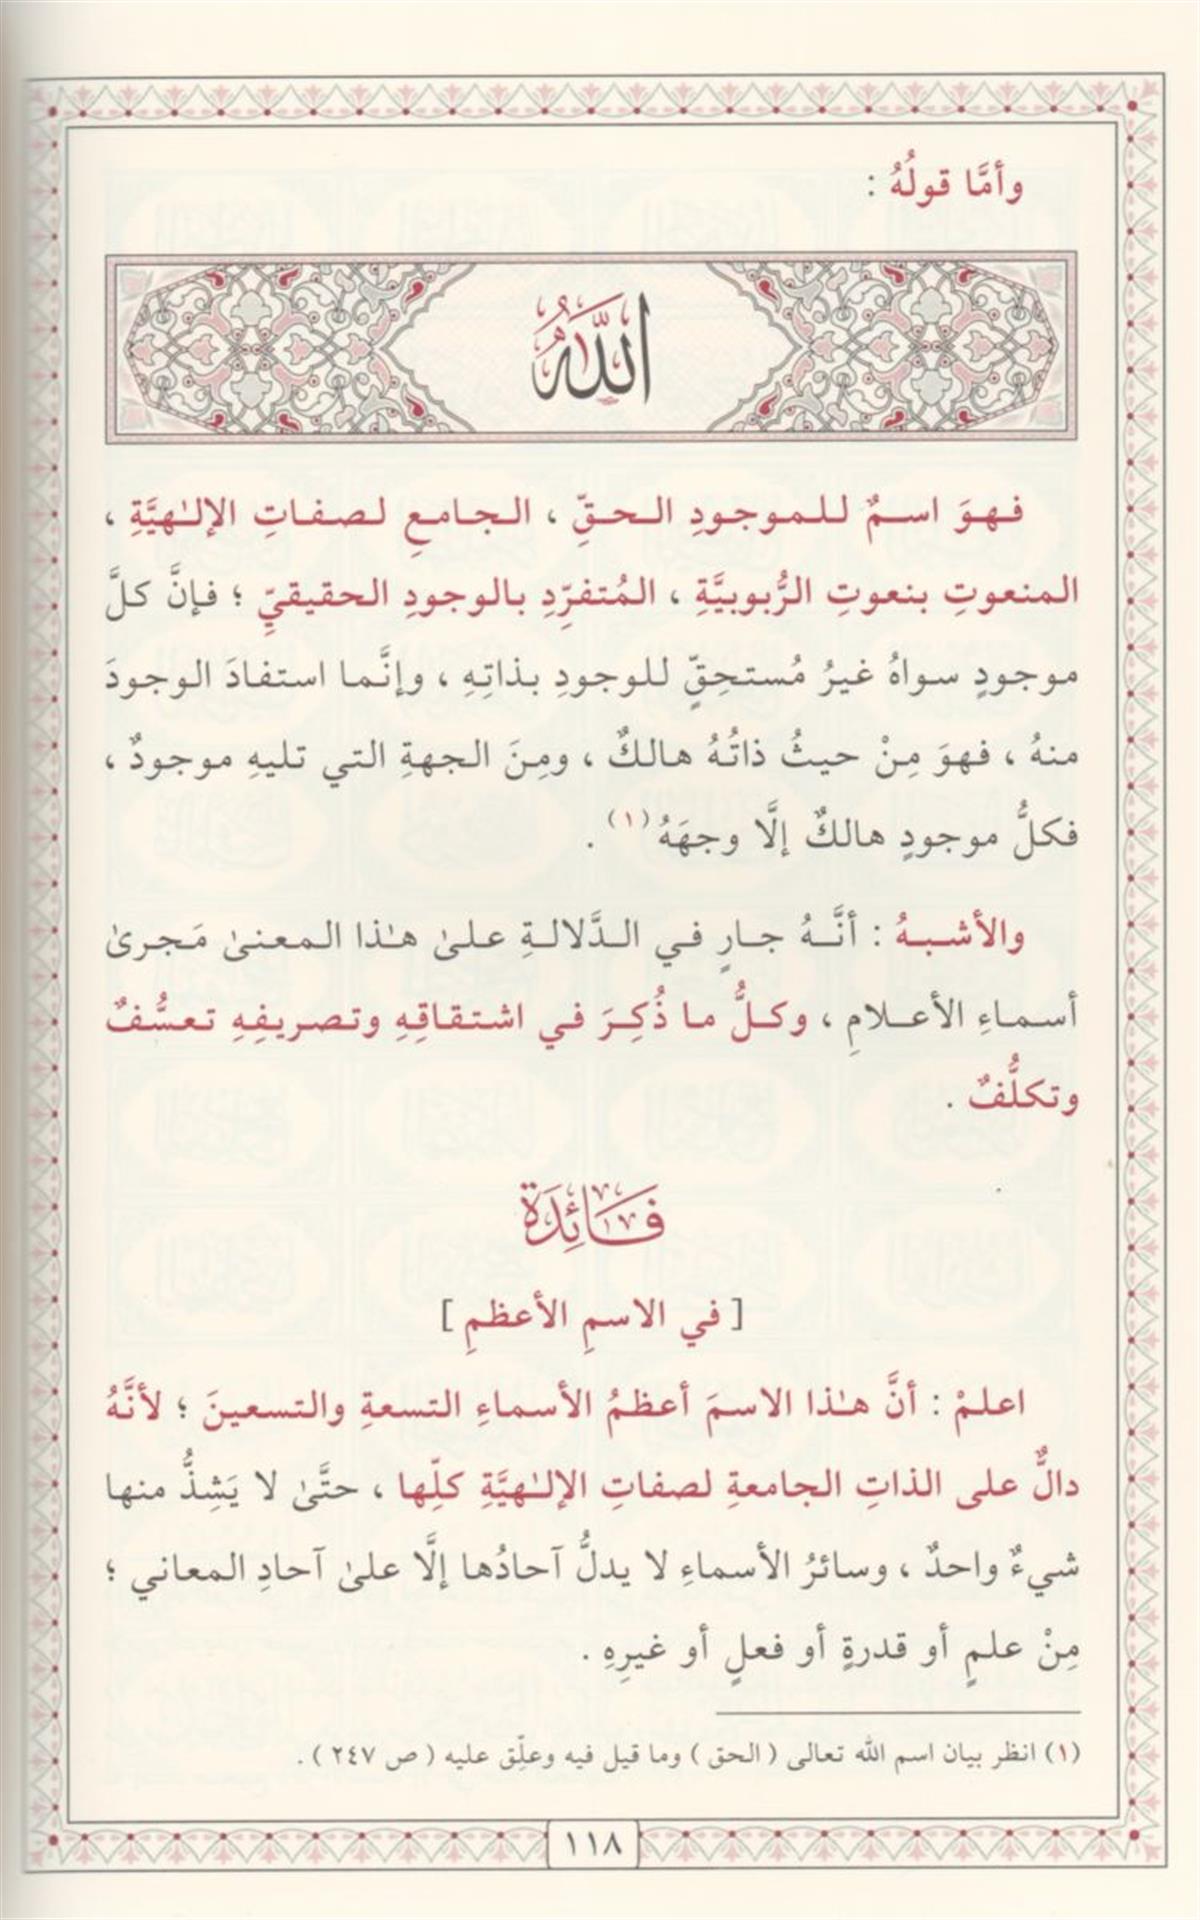 وأمَّا قولُهُ :
اللهُ
فهوَ اسمٌ للموجودِ الحقِّ ، الجامعِ لصفاتِ الإلـٰهيَّةِ ،
المنعوتِ بنعوتِ الرُّبوبيَّةِ ، المُتفرِّدِ بالوجودِ الحقيقيِّ ؛ فإنَّ كلَّ
موجودٍ سواهُ غيرُ مُستحِقٍّ للوجودِ بذاتِهِ ، وإنَّما استفادَ الوجودَ
منهُ ، فهوَ مِنْ حيثُ ذاتُهُ هالكٌ ، ومِنَ الجهةِ التي تليهِ موجودٌ ،
فكلُّ موجودٍ هالكٌ إلَّا وجهَهُ(١) .
والأشبهُ : أنَّهُ جارٍ في الدَّلالةِ علىٰ هـٰذا المعنىٰ مَجرىٰ
أسماءِ الأعلامِ ، وكلُّ ما ذُكِرَ في اشتقاقِهِ وتصريفِهِ تعسُّفٌ
وتكلُّفٌ .
فَائِدَة
[ في الاسمِ الأعظمِ ]
اعلمْ : أنَّ هـٰذا الاسمَ أعظمُ الأسماءِ التسعةِ والتسعينَ ؛ لأنَّهُ
دالٌّ على الذاتِ الجامعةِ لصفاتِ الإلـٰهيَّةِ كلِّها ، حتَّىٰ لا يَشِذُّ منها
شيءٌ واحدٌ ، وسائرُ الأسماءِ لا يدلُّ آحادُها إلَّا علىٰ آحادِ المعاني ؛
مِنْ علمٍ أو قدرةٍ أو فعلٍ أو غيرِهِ .
(١) انظر بيان اسم الله تعالى ( الحق ) وما قيل فيه وعلِّق عليه ( ص ٢٤٧ ) .
١١٨